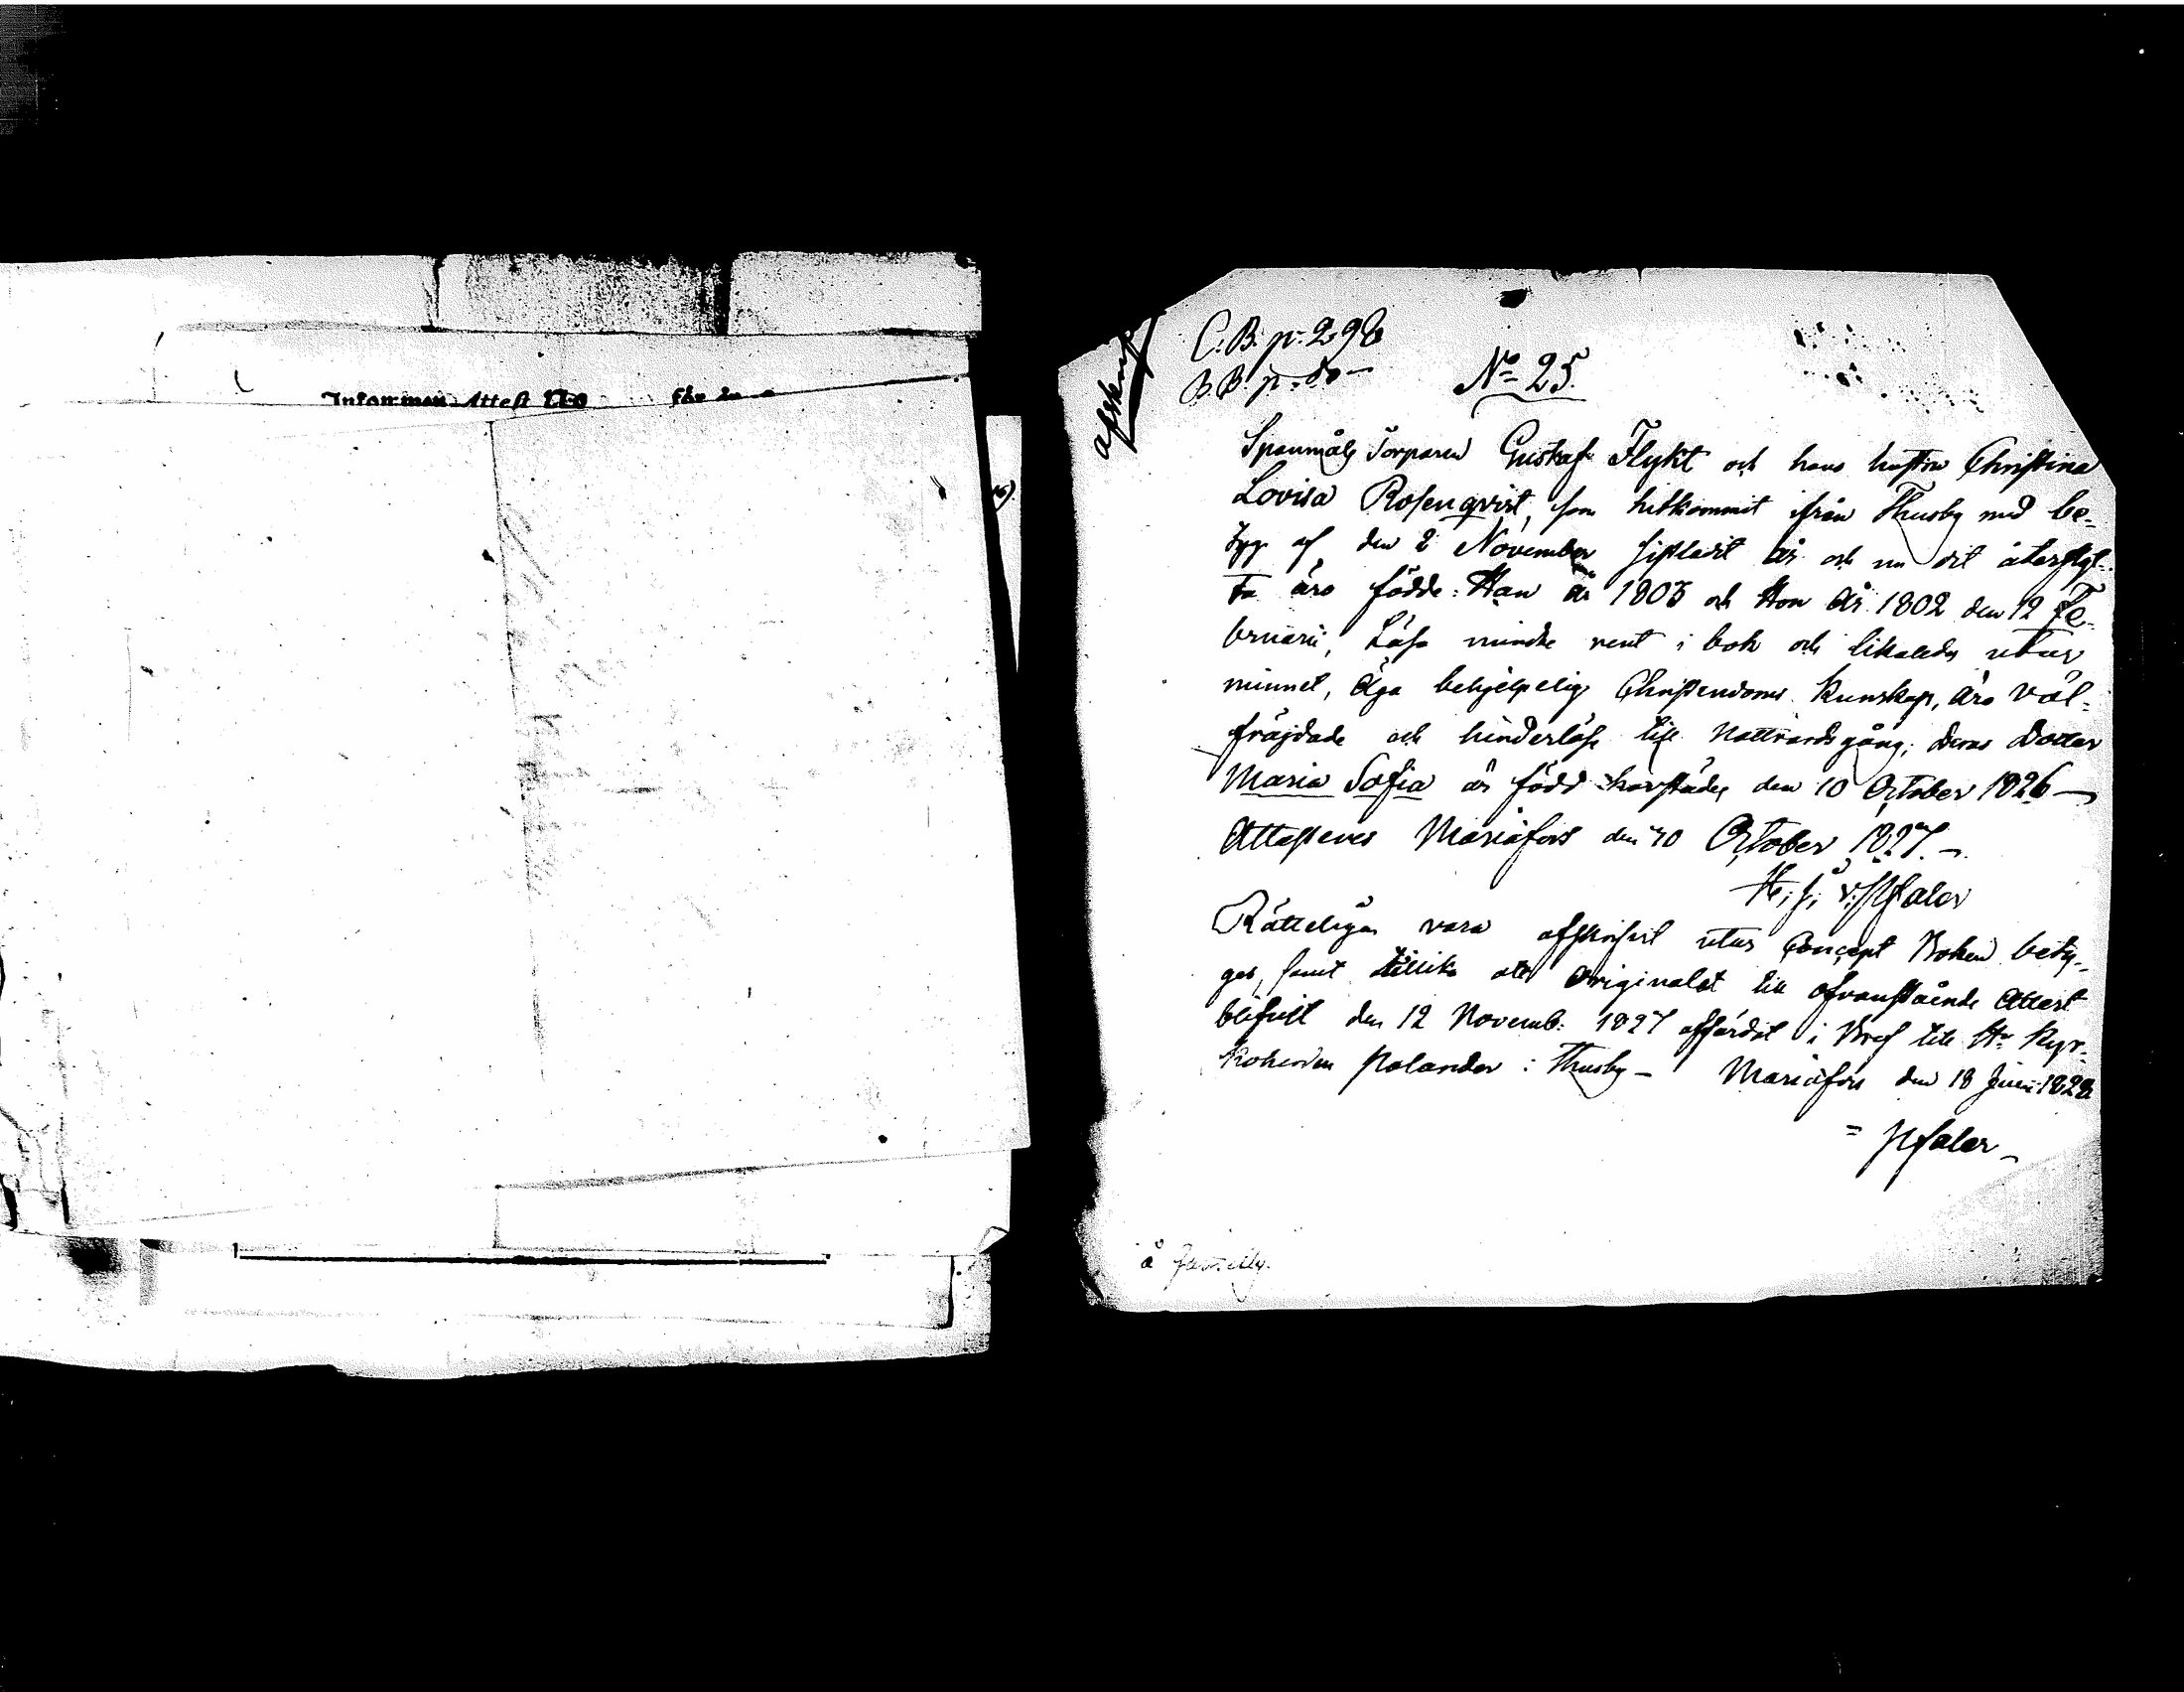 Inkommen Attest N:o för år
afskrift
C.B. p: 298
B.B. p: 80 —
No 25.
Spanmåls Torparen Gustaf Flykt och hans hustru Christina
Lovisa Rosenqvist, som hitkommit ifrån Thusby med be-
tyg af den 2 November sistledit år och nu dit återflyt-
ta äro födde: Han år 1803 och Hon år 1802 den 12 Fe-
bruarii, Läsa mindre rent i bok och likaledes utur
minnet, äga behjelpelig Christendoms Kunskap, äro väl-
fräjdade och hinderlöse till Nattvardsgång; deras Dotter
Maria Sofia är född härstädes den 10 October 1826 —
Attesteres Mariäfors den 30 October 1827. —
H. J. v. Pfaler
Rätteligen vara afskrifvit utur Concept Boken bety-
gas, samt tillika att Originalet till ofvanstående Attest
blifvit den 12 Novemb: 1827 affärdat i Bref till Hr Kyr-
koherden Polander i Thusby — Mariäfors den 18 Junii 1828
= Pfaler —
å familly.